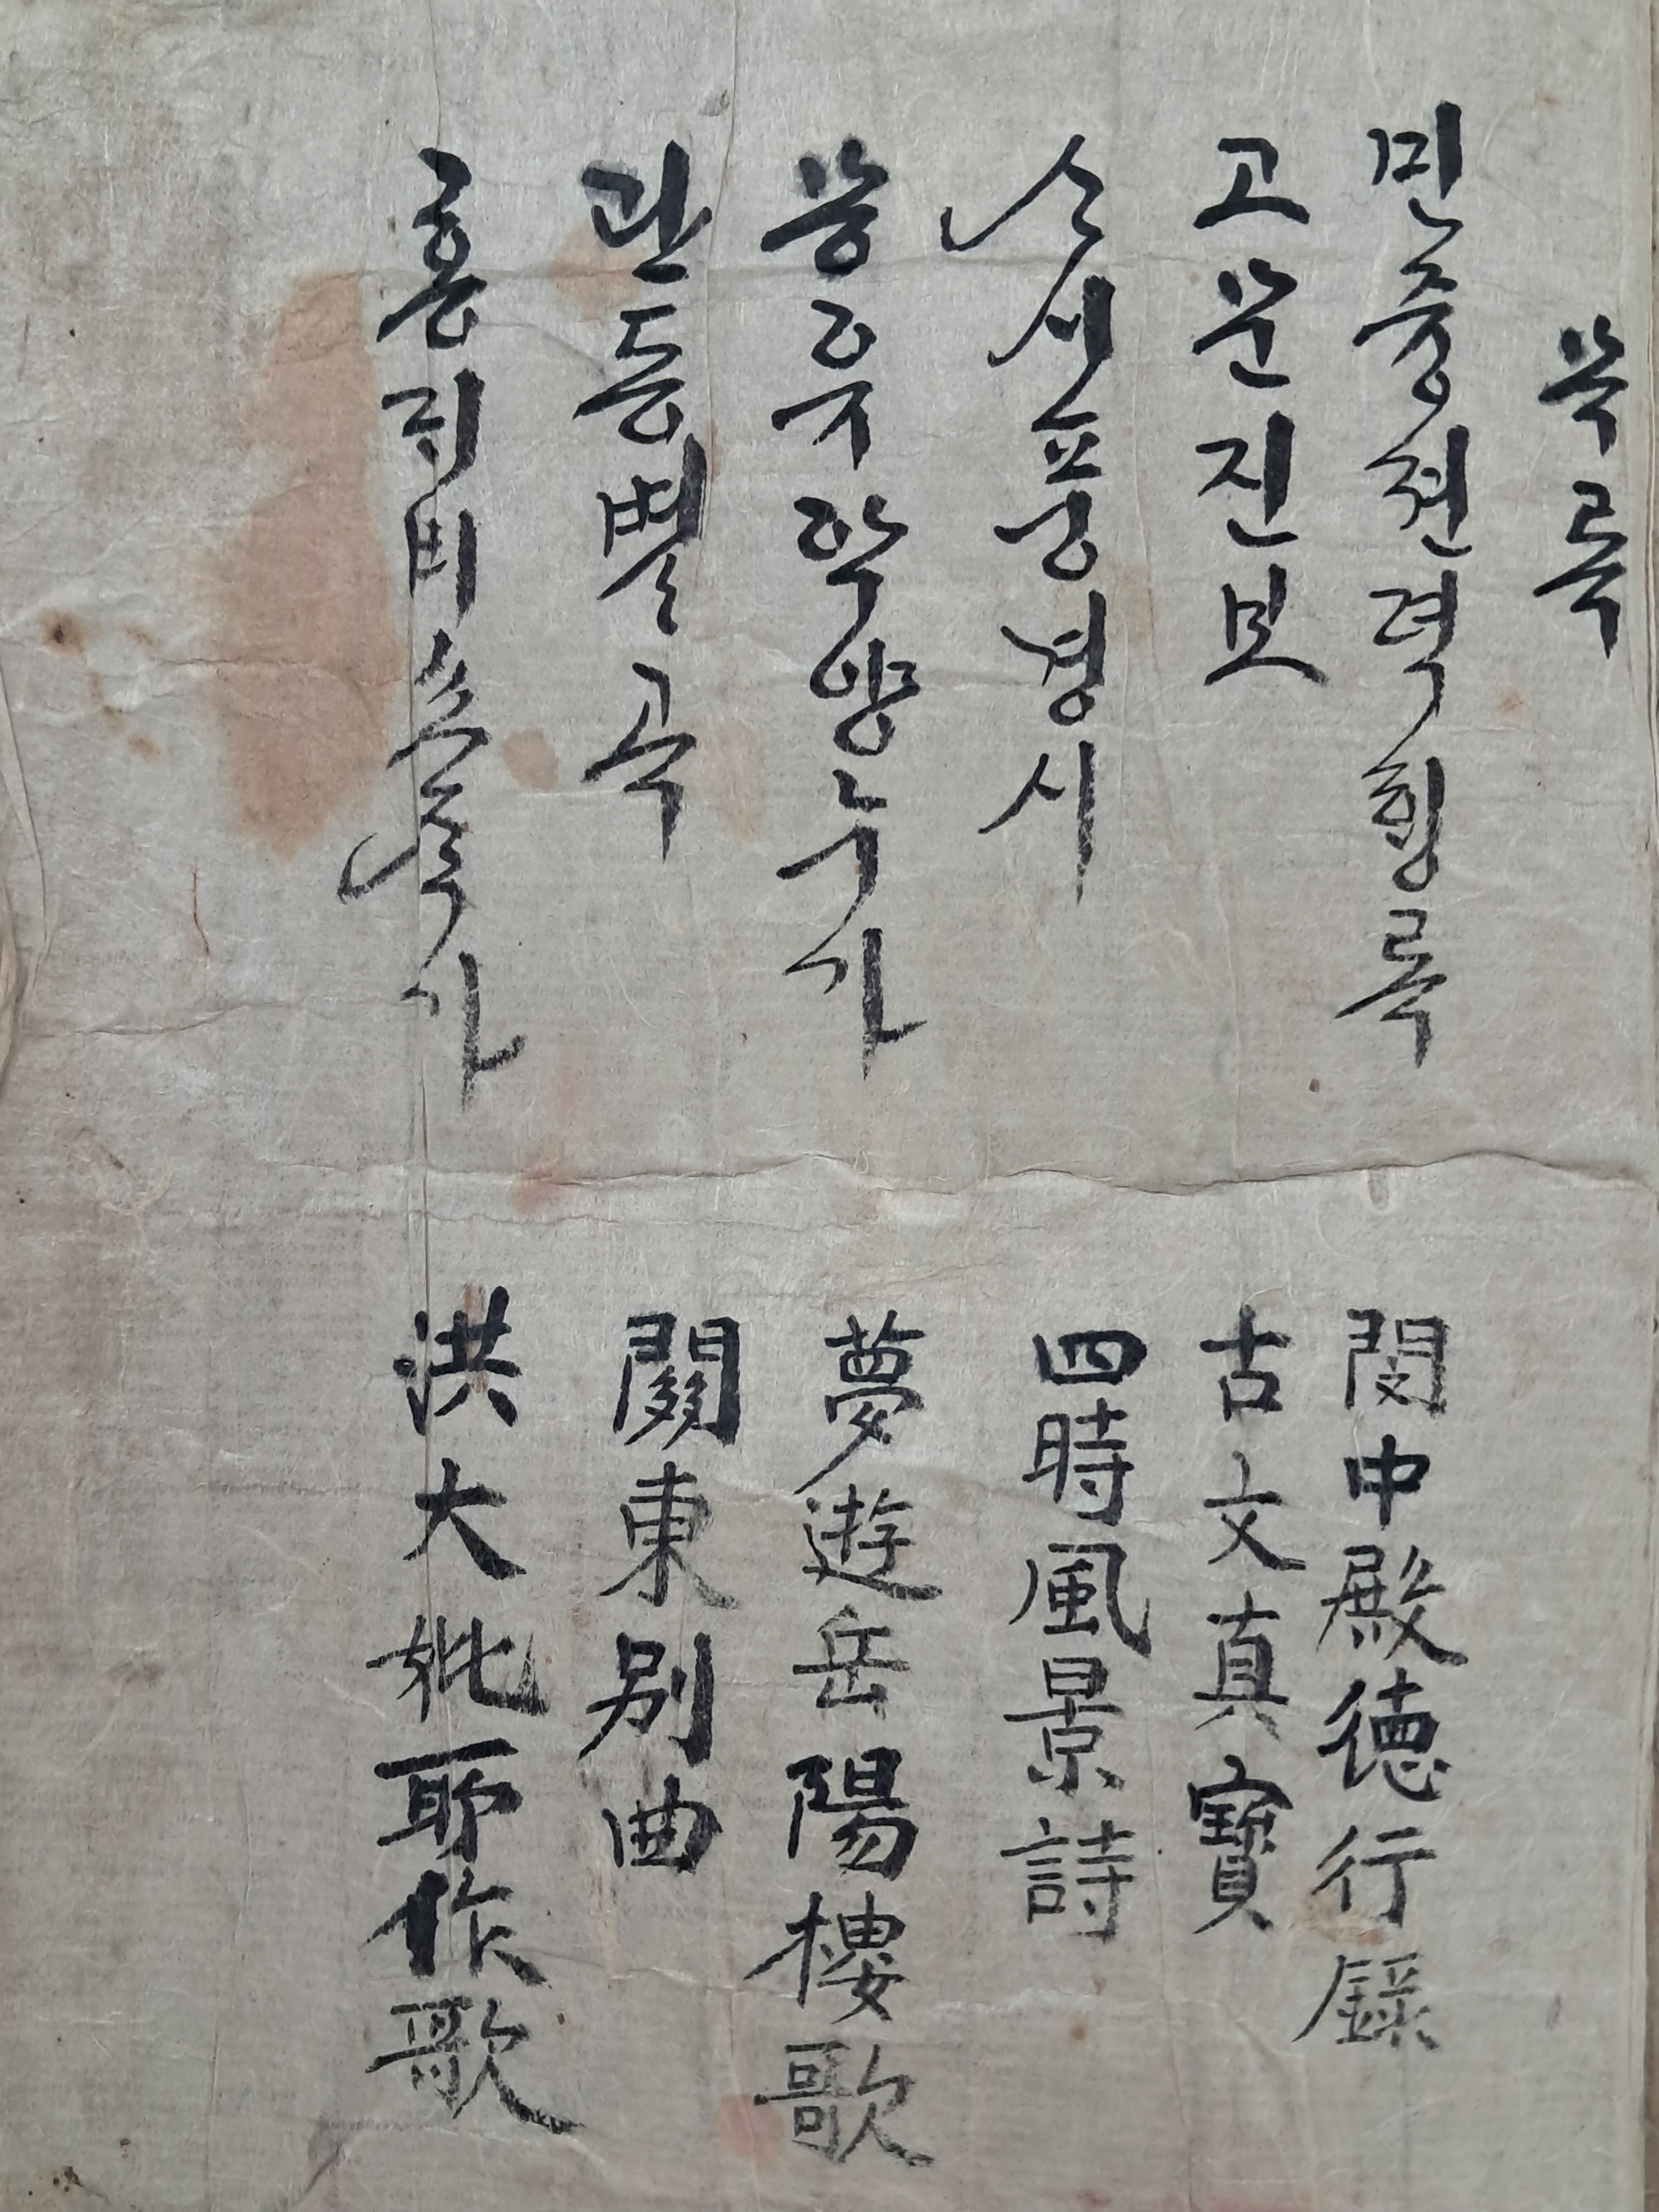 목록
민중젼덕ᄒᆡᆼ록 閔中殿德行錄
고문진보 古文真寶
ᄉᆞ시풍경시 四時風景詩
몽유악양누가 夢遊岳陽樓歌
관동별곡 關東别曲
홍ᄃᆡ비소족가 洪大妣耶作歌